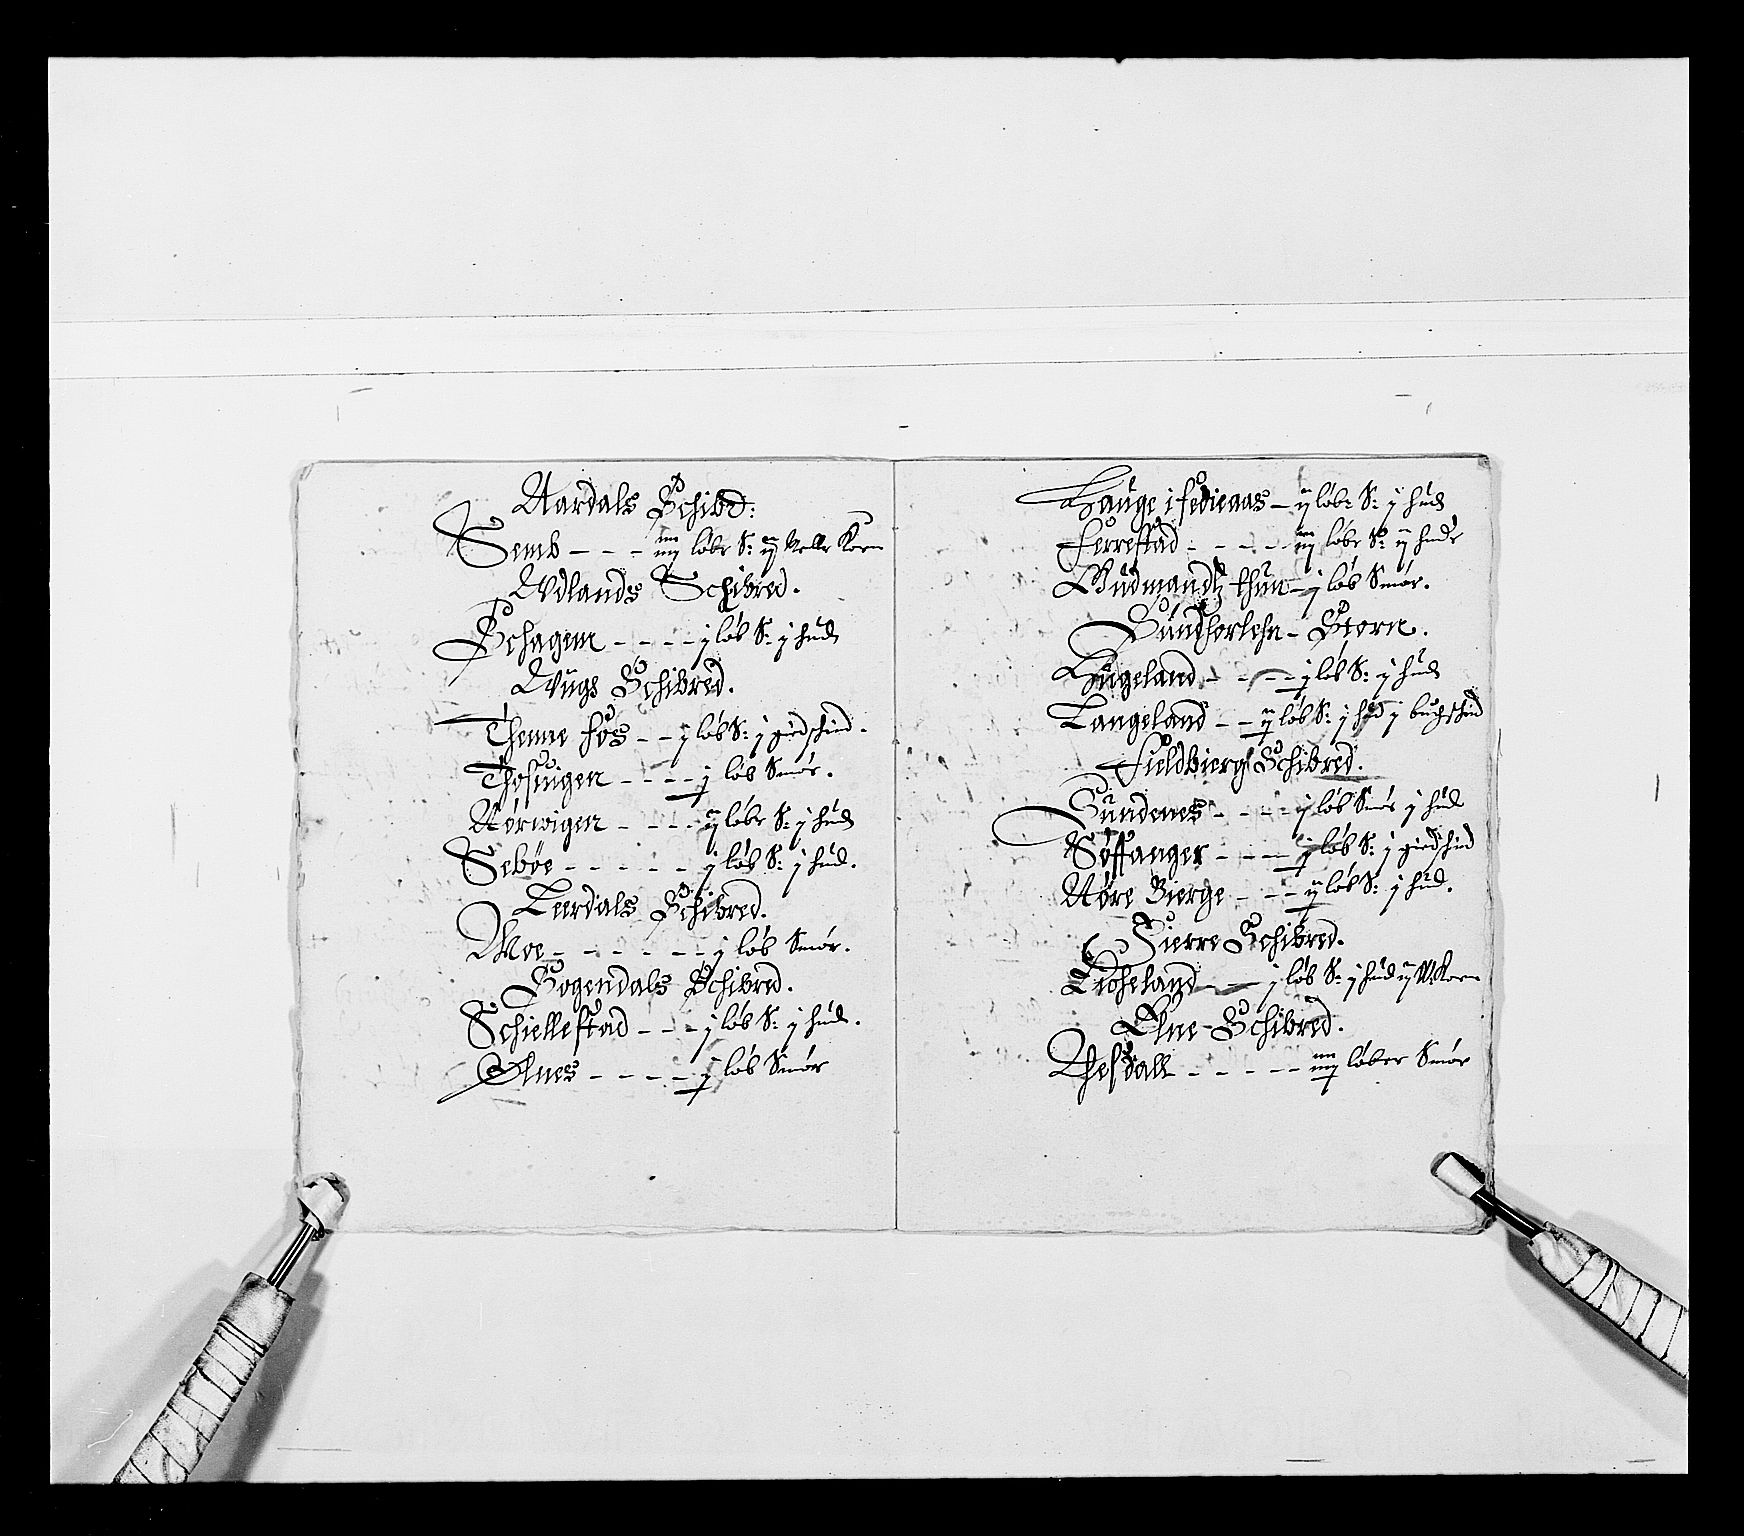 Aardals Schibd:
Semb - - - iiij løbe S: ij Melle Korn
Vdlands Schibred.
Schagem - - - - j løb S: j hud
Wugs Schibred.
Thenne fos - - j løb S: j giedschind.
Thoftuigen - - - - j løb Smør.
Nørwigen - - - - ij løbe S: j hud
Sebøe - - - - - j løb S: j hud.
Leerdals Schibred.
Moe - - - - - - j løb Smør.
Sogendals Schibred.
Schielleftad - - - j løb S: j hud.
Olnes - - - - j løb Smør
Hauge i fedieaas - ij løbe S: j hud
Ferreftad - - - - - iij løbe S: ij huder
Gudmandtz thun - j løb Smør.
Sundhorlehn - Storn.
Hugeland - - - - j løb S: j hud
Langeland - - ij løb S: j hud j buchschind
Fieldbierg Schibred.
Sundenes - - - - j løb Smør j hud
Søffanger - - - - j løb S: j giedschind
Nøre Bierge - - - ij løb S: j hud.
Fierre Schibred.
Licheland - - j løb S: j hud ij M Korn
Olne - Schibred.
Hefdall - - - - - iiij løber Smør